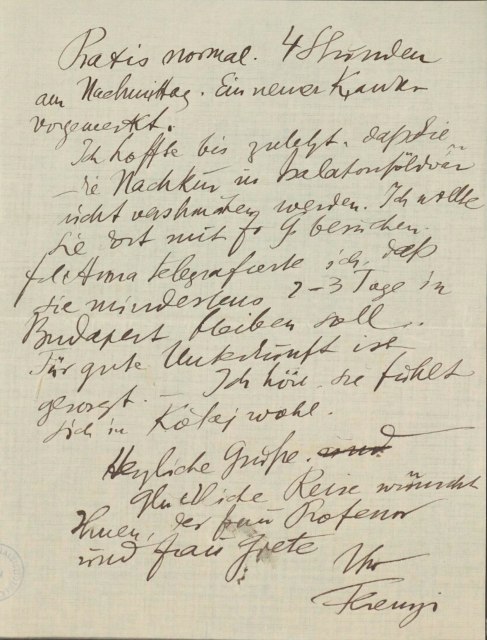 Praxis normal. 4 Stunden
am Nachmittag. Ein neuer Kranker
vorgemerkt.
Ich hoffte bis zuletzt, daß Sie
die Nachkur in Balatonföldvár
nicht verschmähen werden. Ich wollte
Sie dort mit Fr G. besuchen.
Frl Anna telegrafierte ich, daß
sie mindestens 2–3 Tage in
Budapest bleiben soll.
Für gute Unterkunft ist
gesorgt. – Ich höre, sie fühlt
sich in Kótaj wohl.
Herzliche Grüße. und
Glückliche Reise wünscht
Ihnen, der Frau Profesor
und Frau Grete
Ihr
Ferenczi